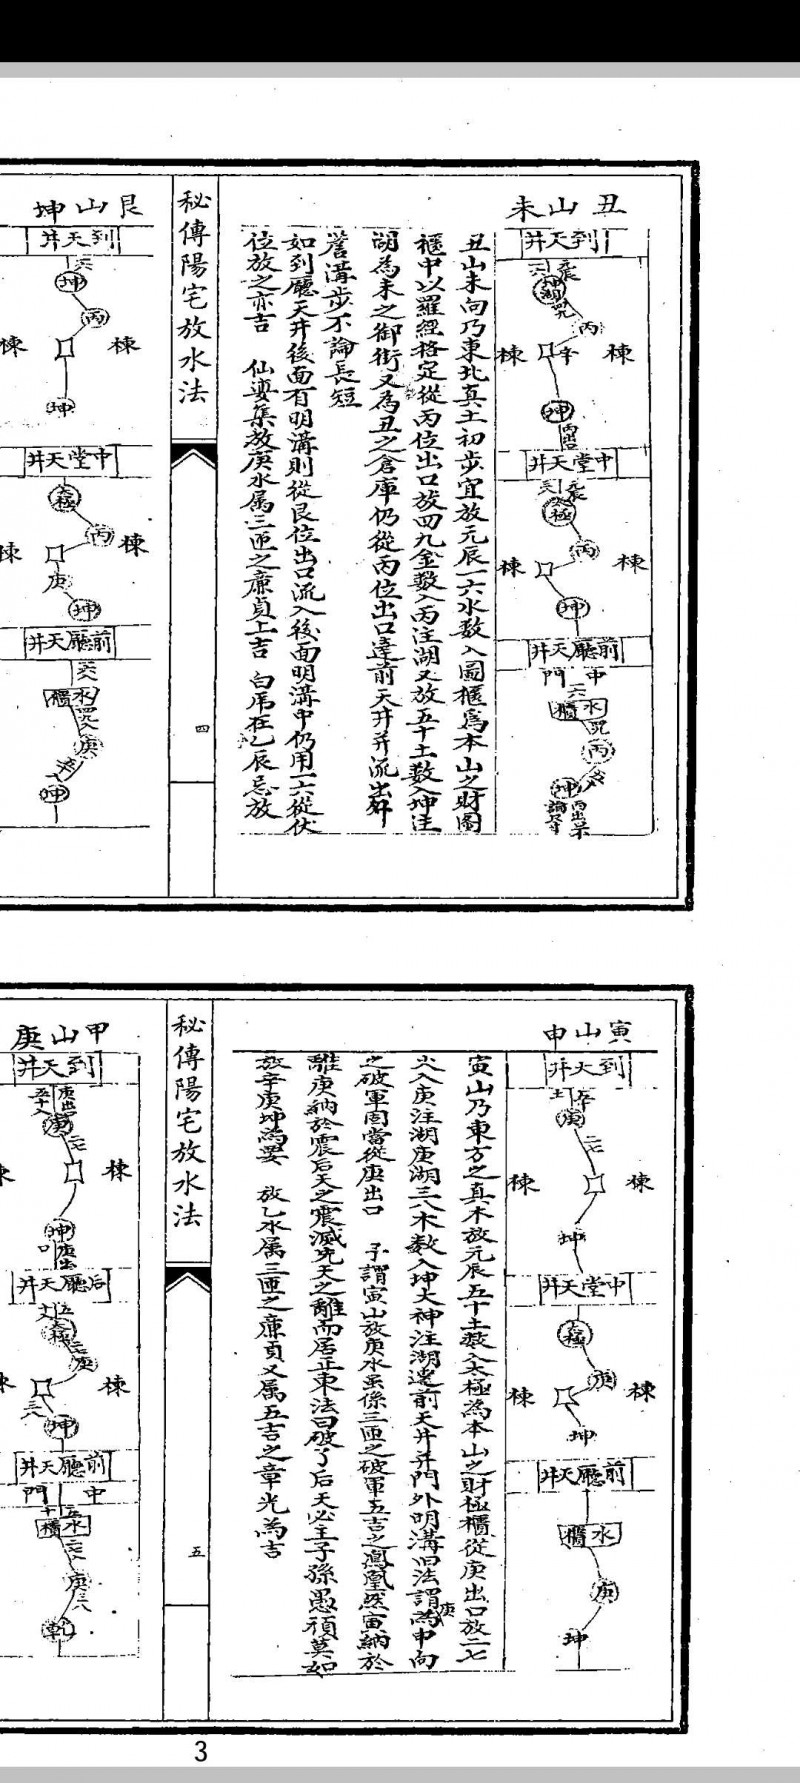 丑山未
到天井
棟
棟
中堂天井
棟
棟
前廳天井
中門
水櫃
丑山未向乃東北真土初步宜放元辰一六水数入圖櫃為本山之財圖
櫃中以羅經格定從丙位出口放四九金数入丙注湖又放五十土数入坤注
湖為未之御街又為丑之倉庫仍從丙位出口達前天井并流出外
詹溝步不論長短
如到廳天井後面有明溝則從艮位出口流入後面明溝中仍用一六從伏
位放之亦吉 仙婆集放庚水属三匝之廉貞上吉 白虎在乙辰忌放
秘傳陽宅放水法
四
艮山坤
到天井
坤
丙
棟
棟
坤
中堂天井
太極
丙
棟
棟
庚
坤
前廳天井
水櫃
庚
坤
寅山申
到天井
寅
棟
棟
坤
中堂天井
太極
庚
棟
棟
坤
前廳天井
水櫃
庚
坤
寅山乃東方之真木放元辰五十土数入太極為本山之財極櫃從庚出口放二七
火入庚注湖庚湖三八木数入坤大神注湖達前天井并門外明溝曰法謂庚為申向
之破軍固當從庚出口 予謂寅山放庚水虽係三匝之破軍五吉之鳳凰然寅納於
離庚納於震后天之震滅先天之離而居正東法曰破了后天必主子孫愚頑莫如
放辛庚坤為要 放乙水属三匝之廉貞又属五吉之章光為吉
秘傳陽宅放水法
五
甲山庚
到天井
寅
棟
坤
后廳天井
太極
庚
棟
三八
坤
前廳天井
中門
水櫃
庚
乾
3